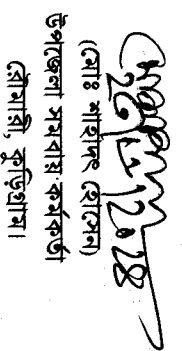 26.12.18
(মোঃ শাহীদুল হোসেন)
উপজেলা সমবায় কর্মকর্তা
রৌমারী, কুড়িগ্রাম।